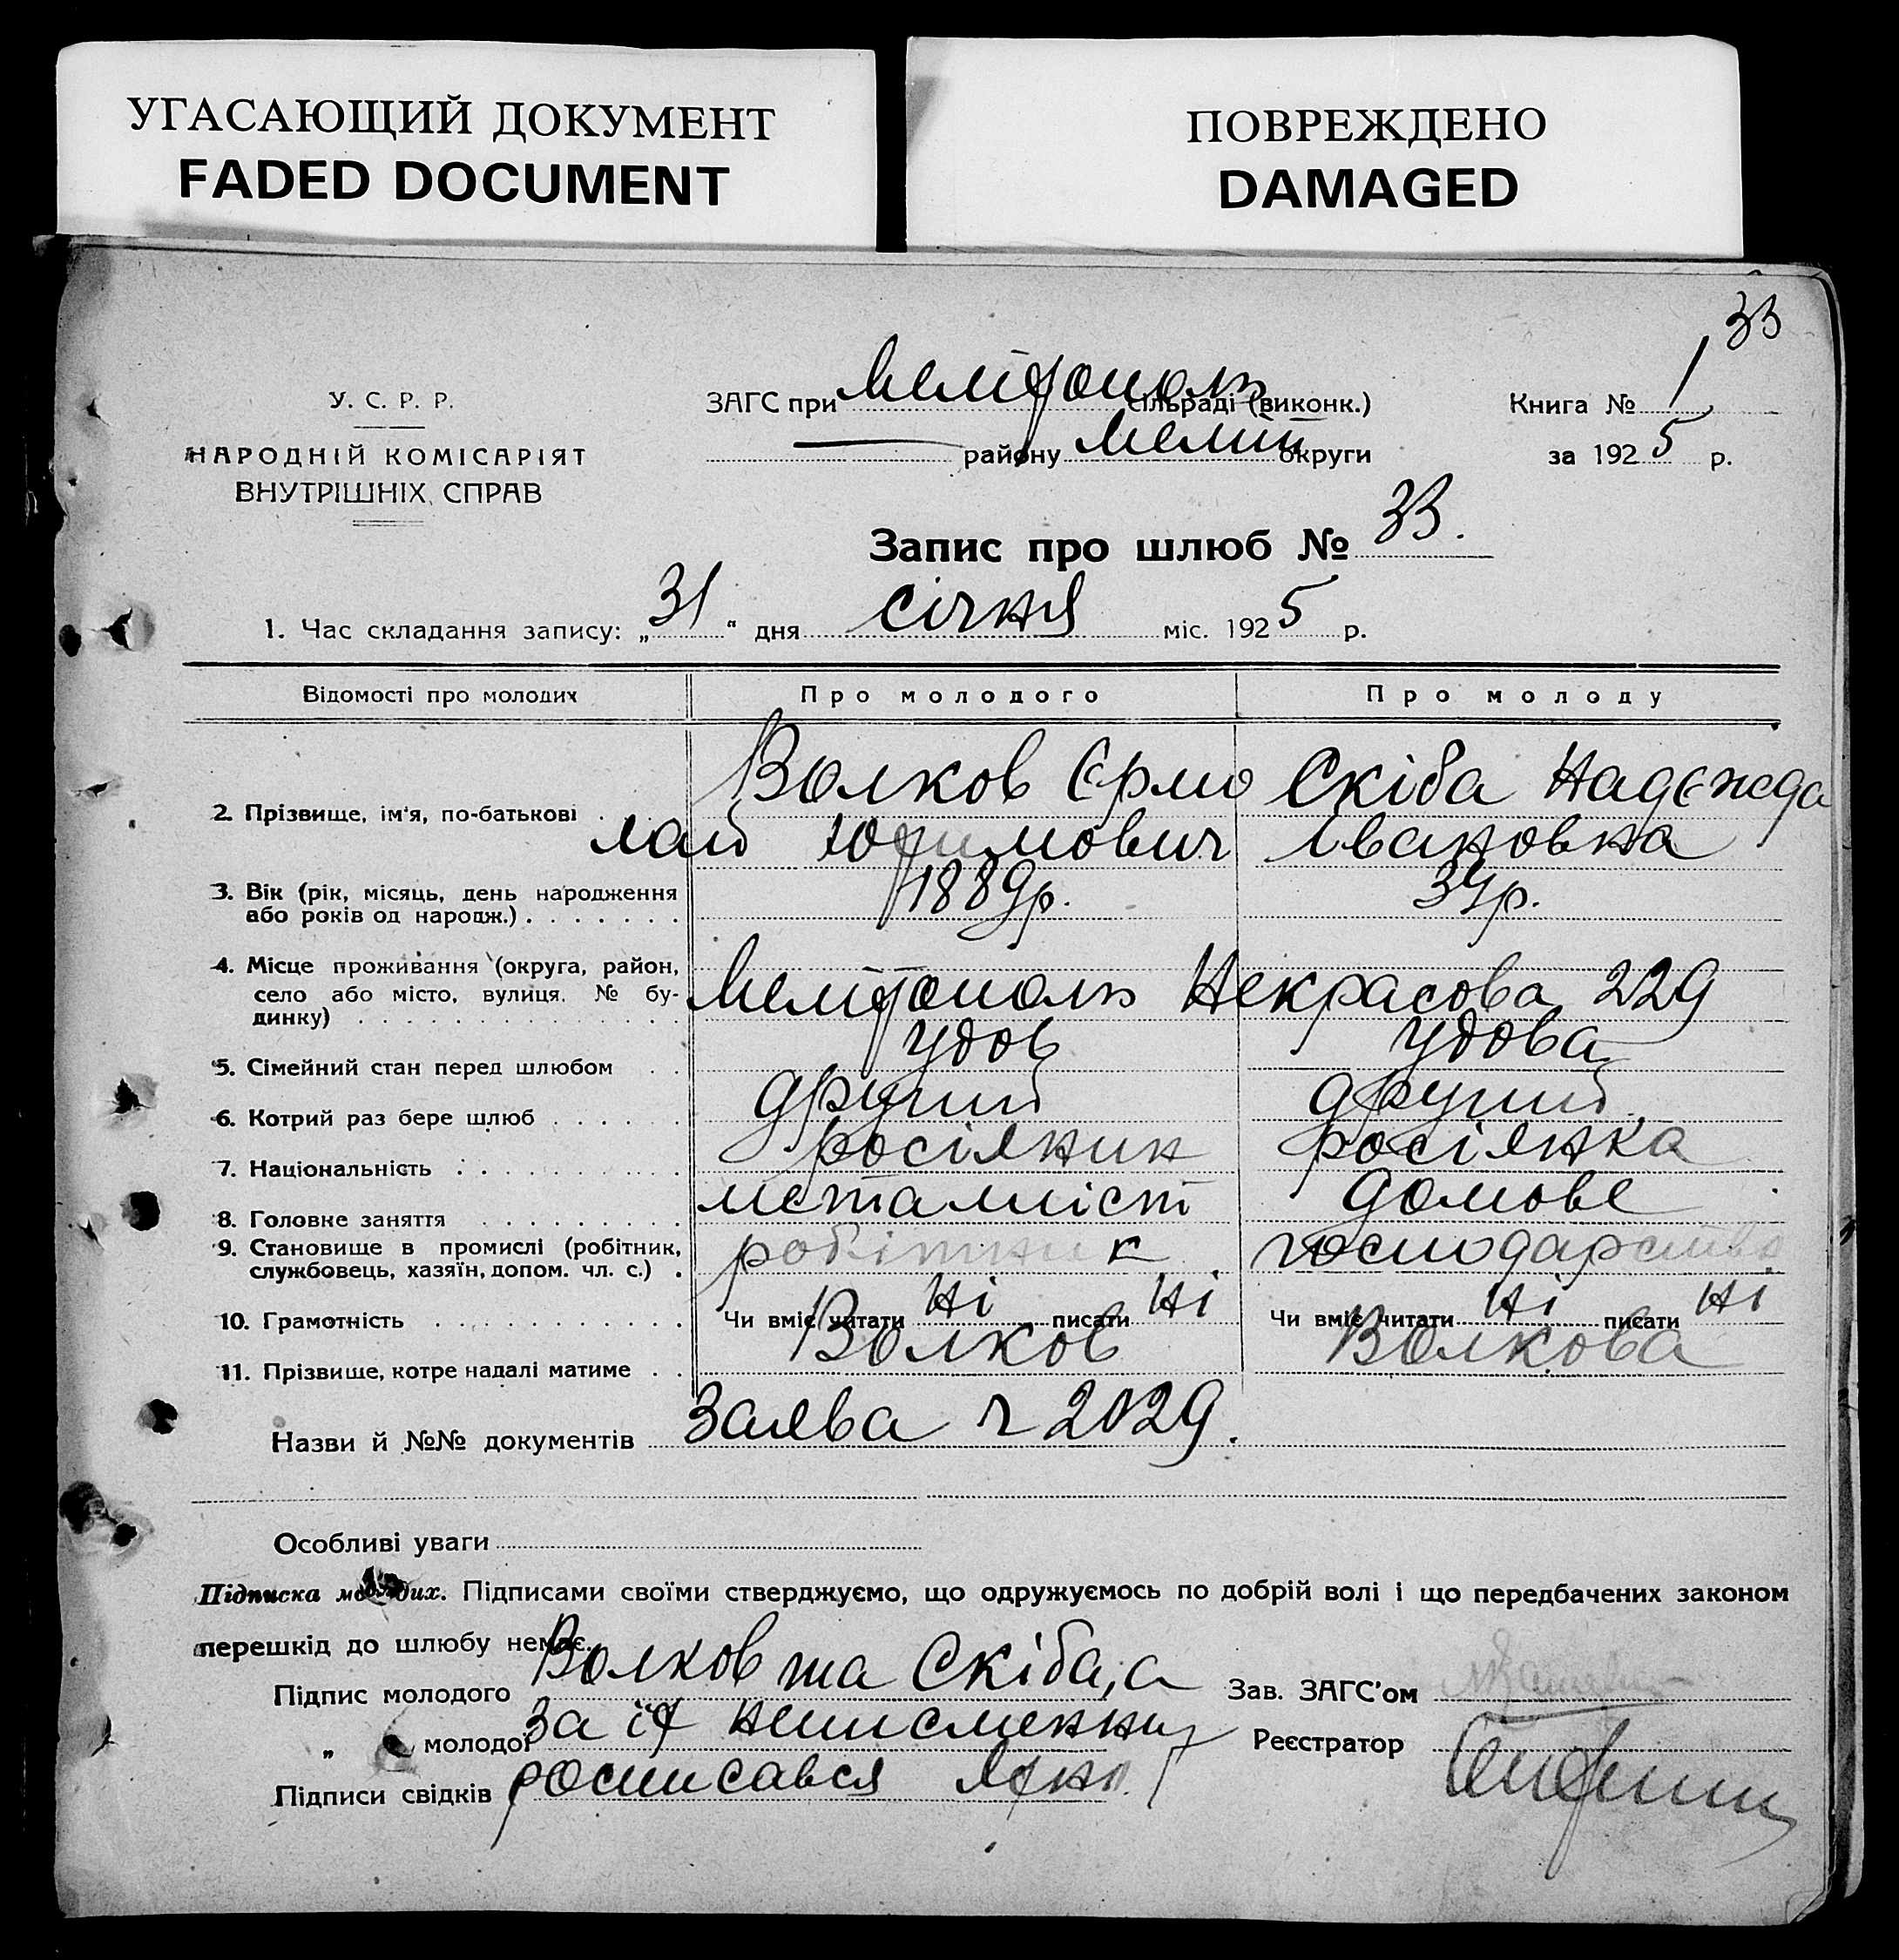 УГАСАЮЩИЙ ДОКУМЕНТ
FADED DOCUMENT
ПОВРЕЖДЕНО
DAMAGED
33
У. С. Р. Р.
НАРОДНІЙ КОМІСАРІЯТ
ВНУТРІШНІХ СПРАВ
ЗАГС при Мелітополь сільраді (виконк.)
району Меліт округи
Книга № 1
за 1925 р.
Запис про шлюб № 33.
1. Час складання запису: „31“ дня січня міс. 1925 р.
Відомості про молодих Про молодого Про молоду
2. Прізвище, ім'я, по-батькові Волков Єрмо Скіба Надєжда
лай Юхимович Івановна
3. Вік (рік, місяць, день народження 1889р. 34р.
або років од народж.)
4. Місце проживання (округа, район,
село або місто, вулиця. № бу- Мелітополь Некрасова 229
динку)
5. Сімейний стан перед шлюбом удов удова
6. Котрий раз бере шлюб другий другий
7. Національність росіянин росіянка
8. Головне заняття металіст домове
9. Становище в промислі (робітник, робітник господарство
службовець, хазяїн, допом. чл. с.)
10. Грамотність Чи вміє читати Ні писати Ні Чи вміє читати Ні писати Ні
11. Прізвище, котре надалі матиме Волков Волкова
Назви й №№ документів Заява ч 2029.
Особливі уваги
Підписка молодих. Підписами своїми стверджуємо, що одружуємось по добрій волі і що передбачених законом
перешкід до шлюбу немає.
Підпис молодого Волков та Скіба, а Зав. ЗАГС'ом
„ молодої за їх неписменни Реєстратор
Підписи свідків росписався